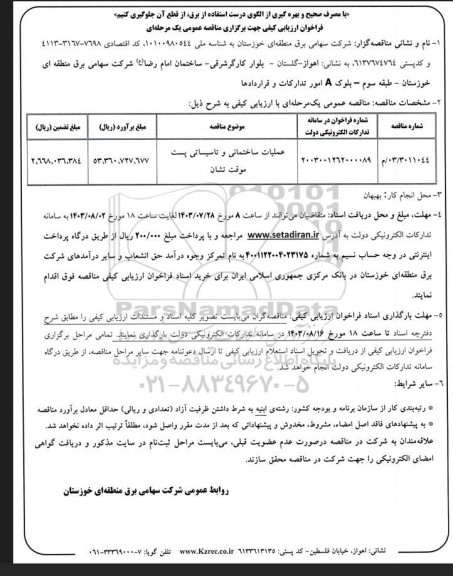 «با مصرف صحیح و بهره گیری از الگوی درست استفاده از برق، از قطع آن جلوگیری کنیم»
فراخوان ارزیابی کیفی جهت برگزاری مناقصه عمومی یک مرحله‌ای
۱- نام و نشانی مناقصه‌گزار: شرکت سهامی برق منطقه‌ای خوزستان به شناسه ملی ۱۰۱۰۰۹۸۰۵۴۴، کد اقتصادی ۷۶۹۸-۳۱۶۷-۴۱۱۳
و کدپستی ۶۱۳۷۶۷۴۷۶۴، به نشانی: اهواز-گلستان - بلوار کارگرشرقی- ساختمان امام رضا(ع) شرکت سهامی برق منطقه ای
خوزستان - طبقه سوم – بلوک A امور تدارکات و قراردادها
۲- مشخصات مناقصه: مناقصه عمومی یک‌مرحله‌ای با ارزیابی کیفی به شرح ذیل:
شماره مناقصه
شماره فراخوان در سامانه تدارکات الکترونیکی دولت
موضوع مناقصه
مبلغ برآورد (ریال)
مبلغ تضمین (ریال)
۰۳/۳۰۱۱۰۴۴/م
۲۰۰۳۰۰۱۲۶۲۰۰۰۰۸۹
عملیات ساختمانی و تاسیساتی پست موقت تشان
۵۳,۳۶۰,۷۲۷,۶۷۷
۲,۶۶۸,۰۳۶,۳۸۴
۳- محل انجام کار: بهبهان
۴- مهلت، مبلغ و محل دریافت اسناد: متقاضیان می‌توانند از ساعت ۸ مورخ ۱۴۰۳/۰۷/۲۸ لغایت ساعت ۱۸ مورخ ۱۴۰۳/۰۸/۰۲ به سامانه
تدارکات الکترونیکی دولت به آدرس www.setadiran.ir مراجعه و با پرداخت مبلغ ۲۰۰/۰۰۰ ریال از طریق درگاه پرداخت
اینترنتی در وجه حساب نسیم به شماره ۴۰۰۱۱۲۲۰۰۴۰۲۳۱۷۵ به نام تمرکز وجوه درآمد حق انشعاب و سایر درآمدهای شرکت
برق منطقه‌ای خوزستان در بانک مرکزی جمهوری اسلامی ایران برای خرید اسناد فراخوان ارزیابی کیفی مناقصه فوق اقدام
نمایند.
۵- مهلت بارگذاری اسناد فراخوان ارزیابی کیفی: مناقصه‌گران می‌بایست تصویر کلیه اسناد و مستندات ارزیابی کیفی را مطابق شرح
دفترچه اسناد تا ساعت ۱۸ مورخ ۱۴۰۳/۰۸/۱۶ در سامانه تدارکات الکترونیکی دولت بارگذاری نمایند. تمامی مراحل برگزاری
فراخوان ارزیابی کیفی از دریافت و تحویل اسناد استعلام ارزیابی کیفی تا ارسال دعوتنامه جهت سایر مراحل مناقصه، از طریق درگاه
سامانه تدارکات الکترونیکی دولت انجام خواهد شد.
ParsNamadData
پایگاه اطلاع رسانی مناقصه و مزایده
۰۲۱-۸۸۳۴۹۶۷۰-۵
۶- سایر شرایط:
* رتبه‌بندی کار از سازمان برنامه و بودجه کشور: رشته‌ی ابنیه به شرط داشتن ظرفیت آزاد (تعدادی و ریالی) حداقل معادل برآورد مناقصه
* به پیشنهادهای فاقد اصل امضاء، مشروط، مخدوش و پیشنهاداتی که بعد از مدت مقرر واصل شود، مطلقاً ترتیب اثر داده نخواهد شد.
علاقه‌مندان به شرکت در مناقصه درصورت عدم عضویت قبلی، می‌بایست مراحل ثبت‌نام در سایت مذکور و دریافت گواهی
امضای الکترونیکی را جهت شرکت در مناقصه محقق سازند.
روابط عمومی شرکت سهامی برق منطقه‌ای خوزستان
نشانی: اهواز، خیابان فلسطین- کد پستی: ۶۱۳۳۶۱۳۱۳۵ www.Kzrec.co.ir تلفن گویا: ۷-۳۳۳۶۹۰۰۰-۰۶۱